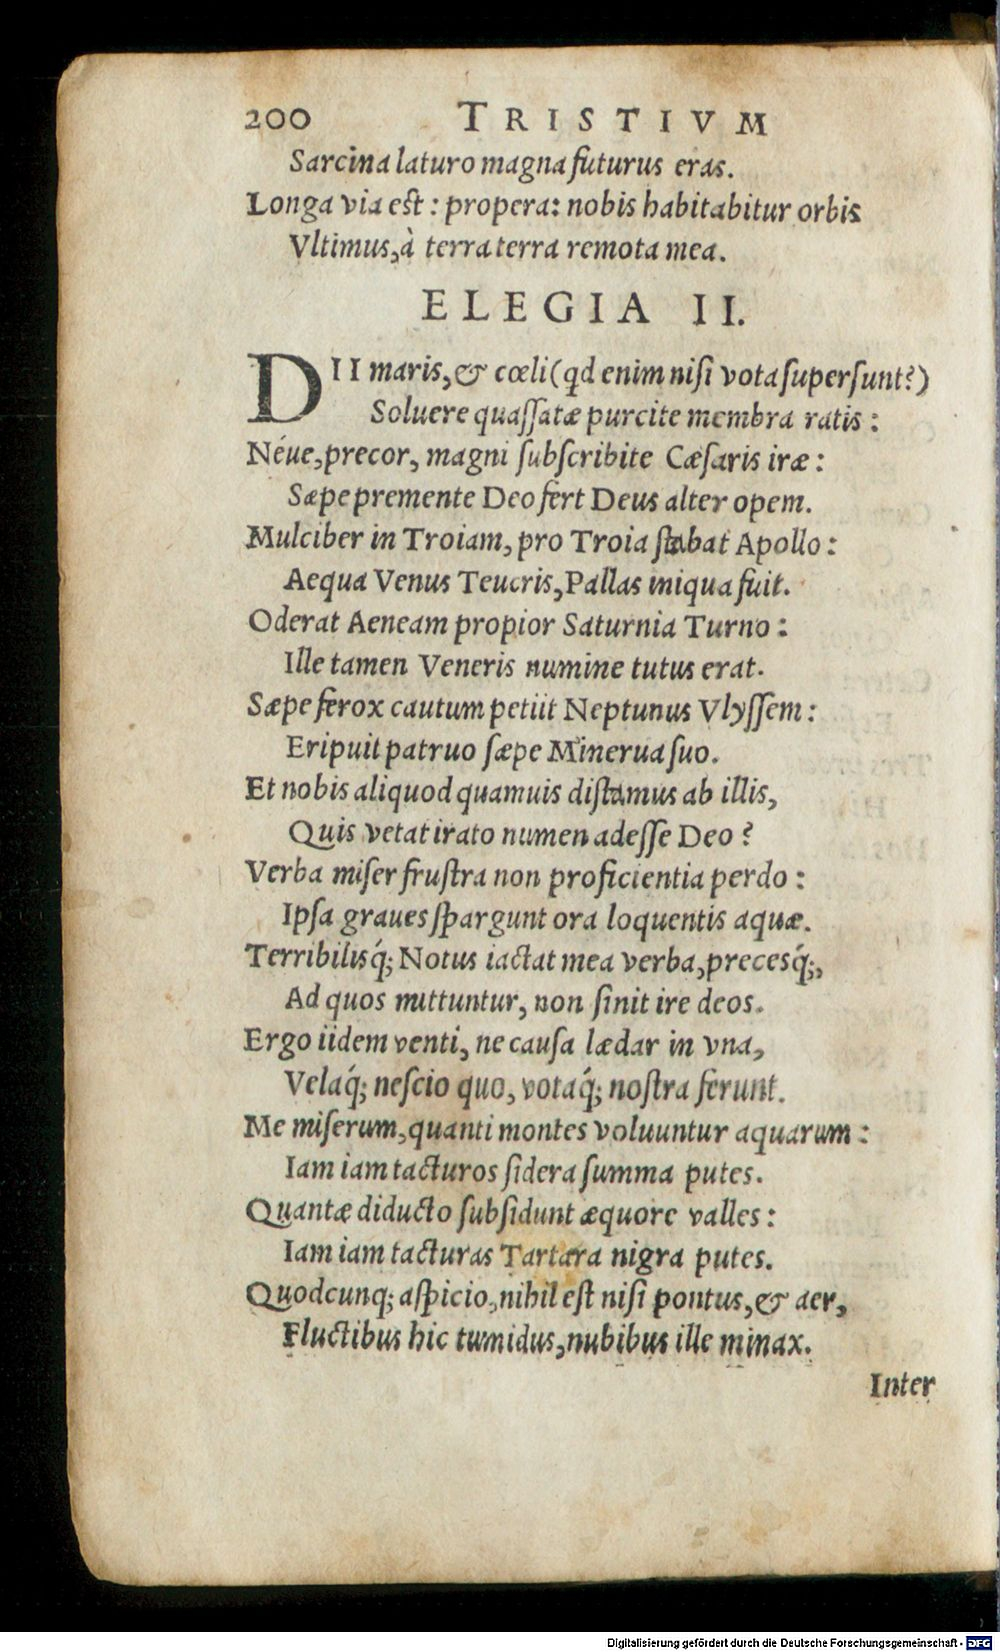 200 TRISTIVM
Sarcina laturo magna futurus eras.
Longa via est: propera: nobis habitabitur orbis
Vltimus, à terra terra remota mea.
ELEGIA II.
DII maris, & cœli (qd enim niſi vota ſuperſunt?)
Soluere quaſſatæ purcite membra ratis:
Néue, precor, magni ſubſcribite Cæſaris iræ:
Sæpe premente Deo fert Deus alter opem.
Mulciber in Troiam, pro Troia ſtabat Apollo:
Aequa Venus Teucris, Pallas iniqua fuit.
Oderat Aeneam propior Saturnia Turno:
Ille tamen Veneris numine tutus erat.
Sæpe ferox cautum petiit Neptunus Vlyſſem:
Eripuit patruo ſæpe Minerua ſuo.
Et nobis aliquod quamuis diſtamus ab illis,
Quis vetat irato numen adeſſe Deo?
Verba miſer fruſtra non proficientia perdo:
Ipſa graues ſpargunt ora loquentis aquæ.
Terribilisq́; Notus iactat mea verba, precesq́;,
Ad quos mittuntur, non ſinit ire deos.
Ergo iidem venti, ne cauſa lædar in vna,
Velaq́; neſcio quo, votaq́; noſtra ferunt.
Me miſerum, quanti montes voluuntur aquarum:
Iam iam tacturos ſidera ſumma putes.
Quantæ diducto ſubſidunt æquore valles:
Iam iam tacturas Tartara nigra putes.
Quodcunq; aſpicio, nihil eſt niſi pontus, & aer,
Fluctibus hic tumidus, nubibus ille minax.
Inter
Digitalisierung gefördert durch die Deutsche Forschungsgemeinschaft - DFG